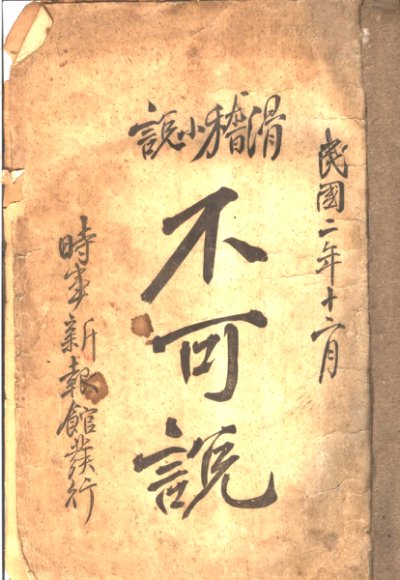 民國二年十二月
滑稽小說
不可說
時事新報館發行